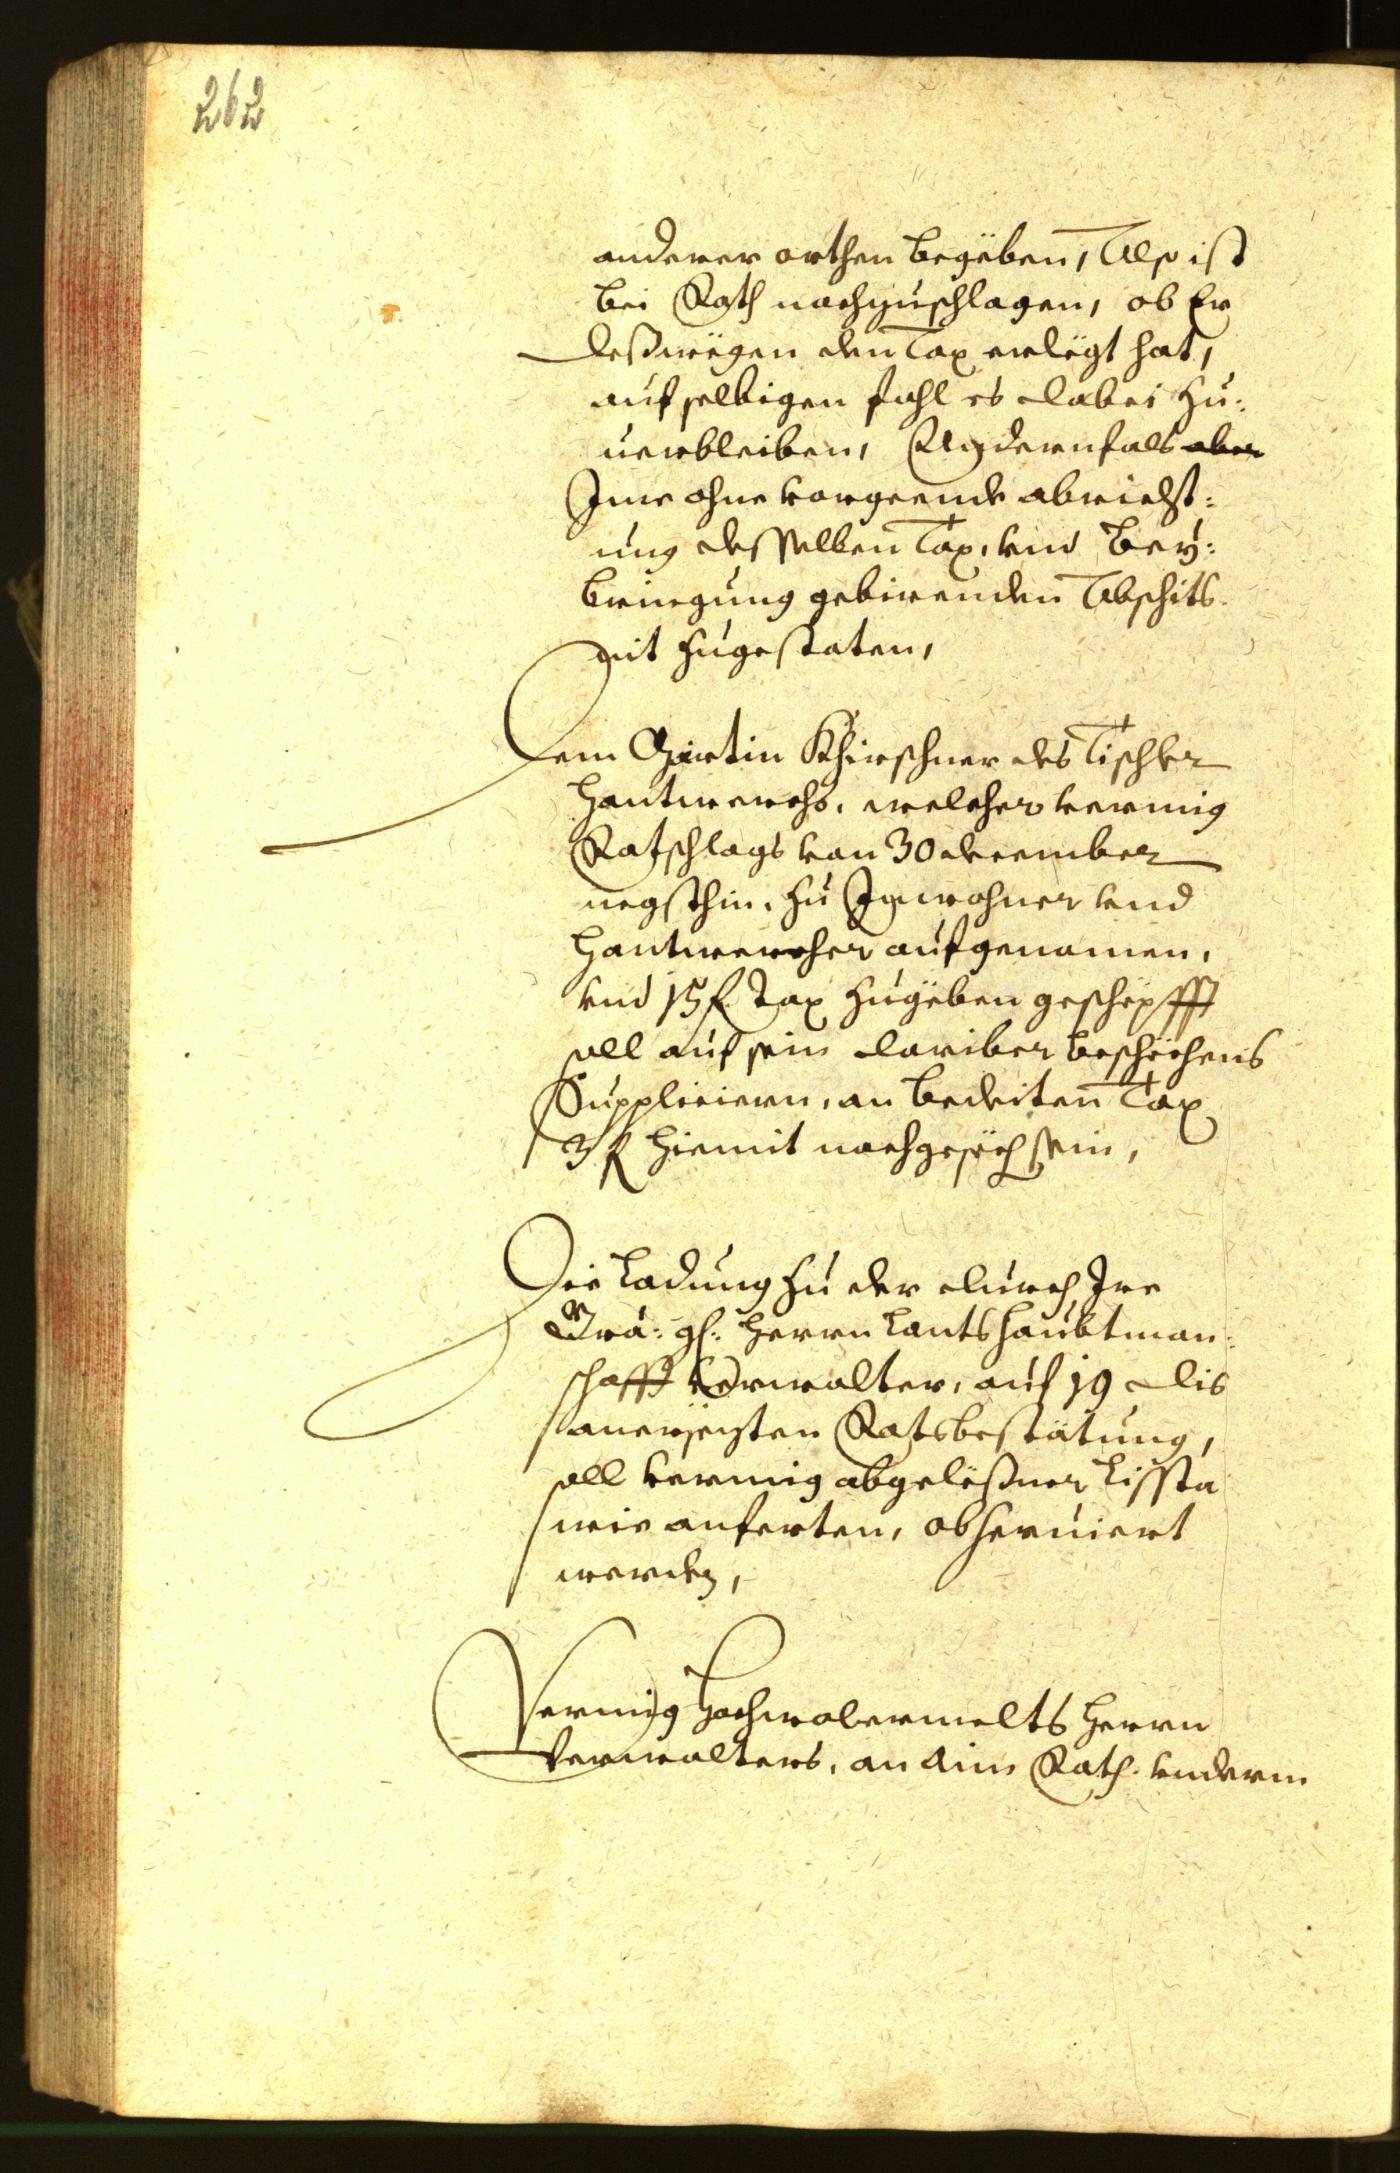 262
anderer orthen begëben, Also ist
bei Rath nachzuschlagen, ob Er
deßwëgen den Tax erlëgt hat,
auf selbigen fahl es dabei zu:
uerbleiben, Andernfals aber
Ime ohne vorgeende abricht:
ung desselben Tax, vnd bey:
bringung gebirenden Abschits
nit zugestaten,
Dem Martin Khirschner des Tischler
hantwerchs, welcher vermig
Ratschlags von 30 december
negsthin, zu Inwohner vnd
hantwercher aufgenomen,
vnd 15 f Tax zugëben geschëpfft
soll auf sein dariber beschëchens
Supplicieren, an bedeiten Tax
3 f hiemit nachgesëch sein,
Die Ladung zu der durch Ire
Gra: gl: herrn Lantshaubtman:
schafft Verwalter, auf 19 dis
anersezten Ratsbestätung,
soll vermig abgelëßner Lissta
wie anferten, obseruiert
werden,
Vermig hochwolermelts herrn
Verwalters, an Ain Rath vnderm